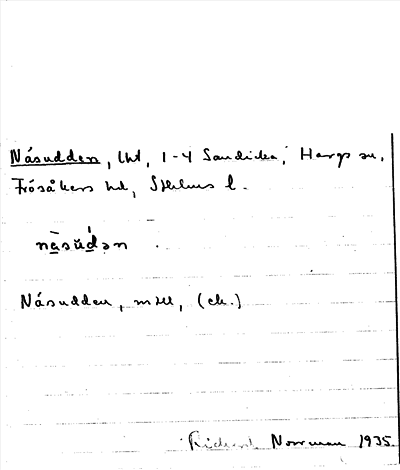 Näsudden, lht, 1-4 Sandika, Hargs sn,
Frösåkers hd, Sthlms l.
nàsúdən
Näsudden, mtbl, (ek.)
Richard Norrman 1935.